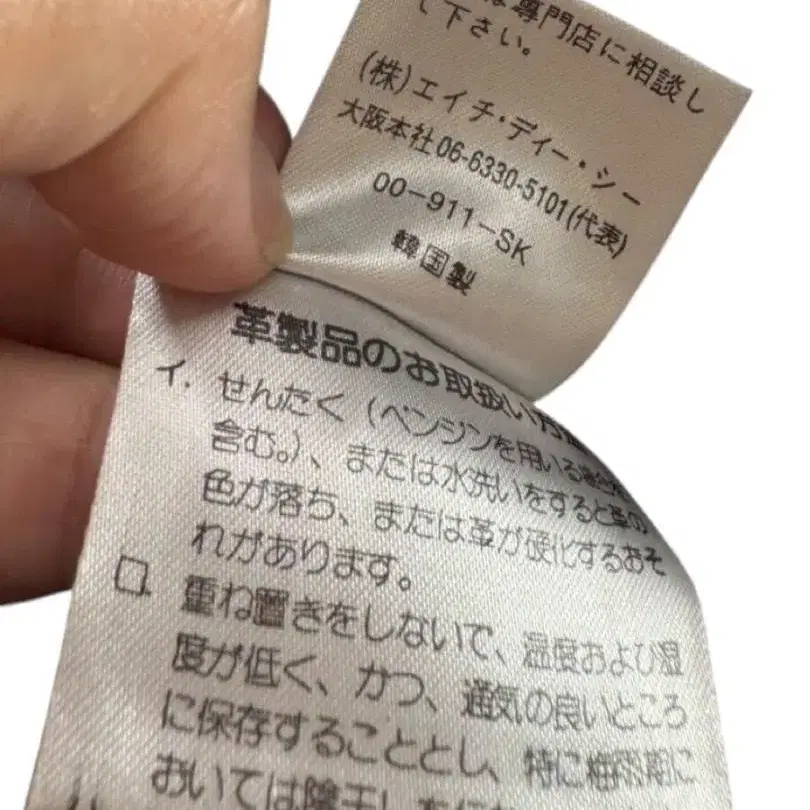 は専門店に相談し
て下さい。
(株)エイチ・ディー・シー
大阪本社06-6330-5101(代表)
00-911-SK
韓国製
革製品のお取扱い方
イ. せんたく(ベンジンを用いる場合を
含む。)、または水洗いをすると革の
色が落ち、または革が硬化するおそ
れがあります。
ロ. 重ね置きをしないで、温度および湿
度が低く、かつ、通気の良いところ
に保存することとし、特に梅雨期に
おいては陰干しを